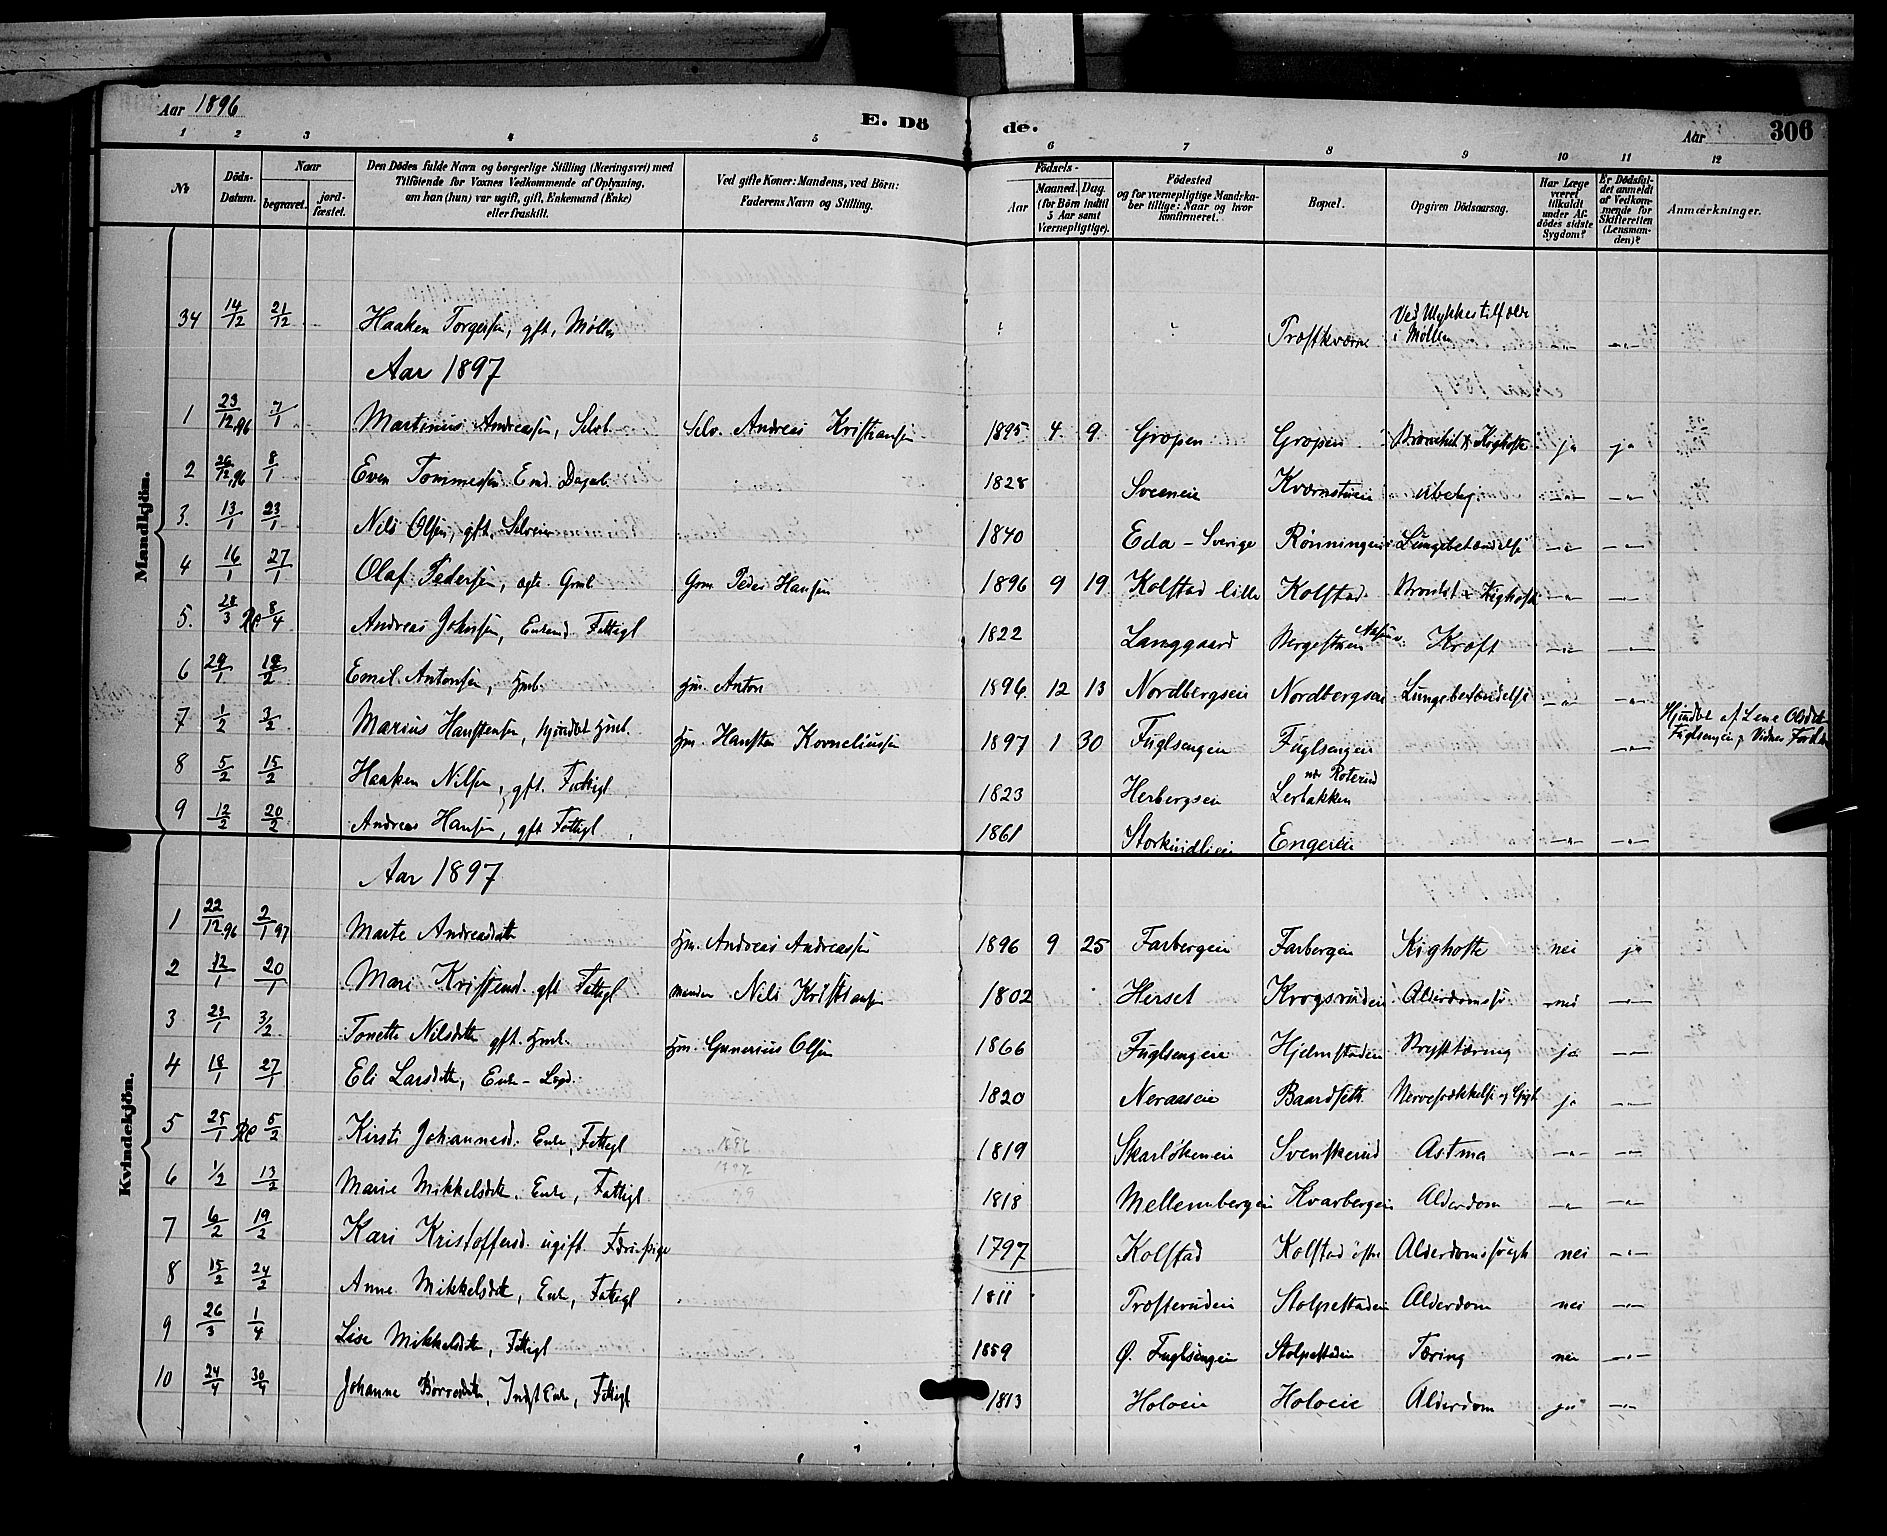 Aar 1896
E. Dö
de.
Aar
306
1 2 3 4 5 6 7 8 9 10 11 12
No
Döds-
Datum.
Naar
begravet.
jord-
fæstet.
Den Dödes fulde Navn og borgerlige Stilling (Næringsvei) med
Tilföiende for Voxnes Vedkommende af Oplysning,
om han (hun) var ugift, gift, Enkemand (Enke)
eller fraskilt.
Ved gifte Koner: Mandens, ved Börn:
Faderens Navn og Stilling.
Födsels-
Aar
Maaned. Dag.
(for Börn indtil
5 Aar samt
Værnepligtige).
Födested
og for værnepligtige Mandska-
ber tillige: Naar og hvor
konfirmeret.
Bopæl.
Opgiven Dödsaarsag.
Har Læge
været
tilkaldt
under Af-
dödes sidste
Sygdom?
Er Dödsfal-
det anmeldt
af Vedkom-
mende for
Skifteretten
(Lensman-
den)?
Anmærkninger.
Mandkjön.
34 14/12 21/12 Haaken Torgersen, gft, Møller ? Træftkværne Ved Ulykkestilfælde i Møllen -"- -"-
Aar 1897
1 23/12 96 7/1 Martinius Andreassen, Selvb. Selv. Andreas Kristiansen 1895 4 9 Gropen Gropen Bronchit & Kighoste ja ja
2 26/12 96 8/1 Even Tommessen Enk. Dagarb 1828 Sveeneie Kværnstuen ubekj -"- -"-
3. 13/1 23/1 Nils Olsen, gft. Selveier 1840 Eda - Sverige Rønningen Lungebetændelse -"- -"-
4 16/1 27/1 Olaf Pedersen, ægte Grmb Grm Peder Hansen 1896 9 19 Kolstad lille Kolstad Bronkit & Kighoste -"- -"-
5. 28/3 8/4 Andreas Johnsen, Enkemd. Fattigl 1822 Langgaard Bergestuen Kræft -"- -"-
6 29/1 19/2 Emil Antonsen, Hmb. Hm. Anton 1896 12 13 Nordbergseie Nordbergseie Lungebetændelse -"- -"-
7 1/2 3/2 Marius Hanstensen, hjemdøbt Hmb. Hm. Hansten Korneliussen 1897 1 30 Fuglsengen Fuglsengen -"- Hjmdøbt af Lene Olsdat Fuglsengen, Vidner Forældre
8 5/2 15/2 Haaken Nilsen, gft. Fattigl 1823 Herbergseie Lerbakken ndr Roterud
9 12/2 20/2 Andreas Hansen, gft Fattigl 1861 Storkindlien Engeseie -"- -"-
Kvindekjön.
Aar 1897
1 22/12 96 2/1 97 Marte Andreasdatt Hm. Andreas Andreassen 1896 9 25 Farbergeie Farbergeie Kighoste nei ja
2 12/1 20/1 Mari Kristensd. gft Fattigl manden Nils Kristiansen 1802 Herset Krogsruden Alderdomss nei -"-
3 23/1 3/2 Tonette Nilsdatt gft. Hmb. Hm. Gunerius Olsen 1866 Fuglsengeie Hjelmstaden Brysttæring ja -"-
4 18/1 27/1 Eli Larsdatt, Enke - Lægd. 1820 Neraaseie Baardseth Nervesvækkelse og Gigt ja -"-
5 25/1 5/2 Kirsti Johannesd. Enke, Fattigl 1819 Skarløkeneie Svenskerud Astma -"- -"-
6 1/2 13/2 Marie Mikkelsdatt. Enke, Fattigl 1818 Mellembergeie Kvarbergeie Alderdom -"- -"-
7 6/2 19/2 Kari Kristoffersd. ugift 1797 Kolstad Kolstad østre Alderdomssvagh nei -"-
8 15/2 24/2 Anne Mikkelsdatt, Enke, Fattigl 1811 Træfteruden Stolpestaden Alderdom nei -"-
9 26/3 1/4 Lise Mikkelsdatt, Fattigl 1859 Ø. Fuglsengen Stolpestaden Tæring nei -"-
10 24/4 30/4 Johanne Børresdatt, Indst Enke, Fattigl 1813 Holoeie Holoeie Alderdom ja -"-
1897
1797